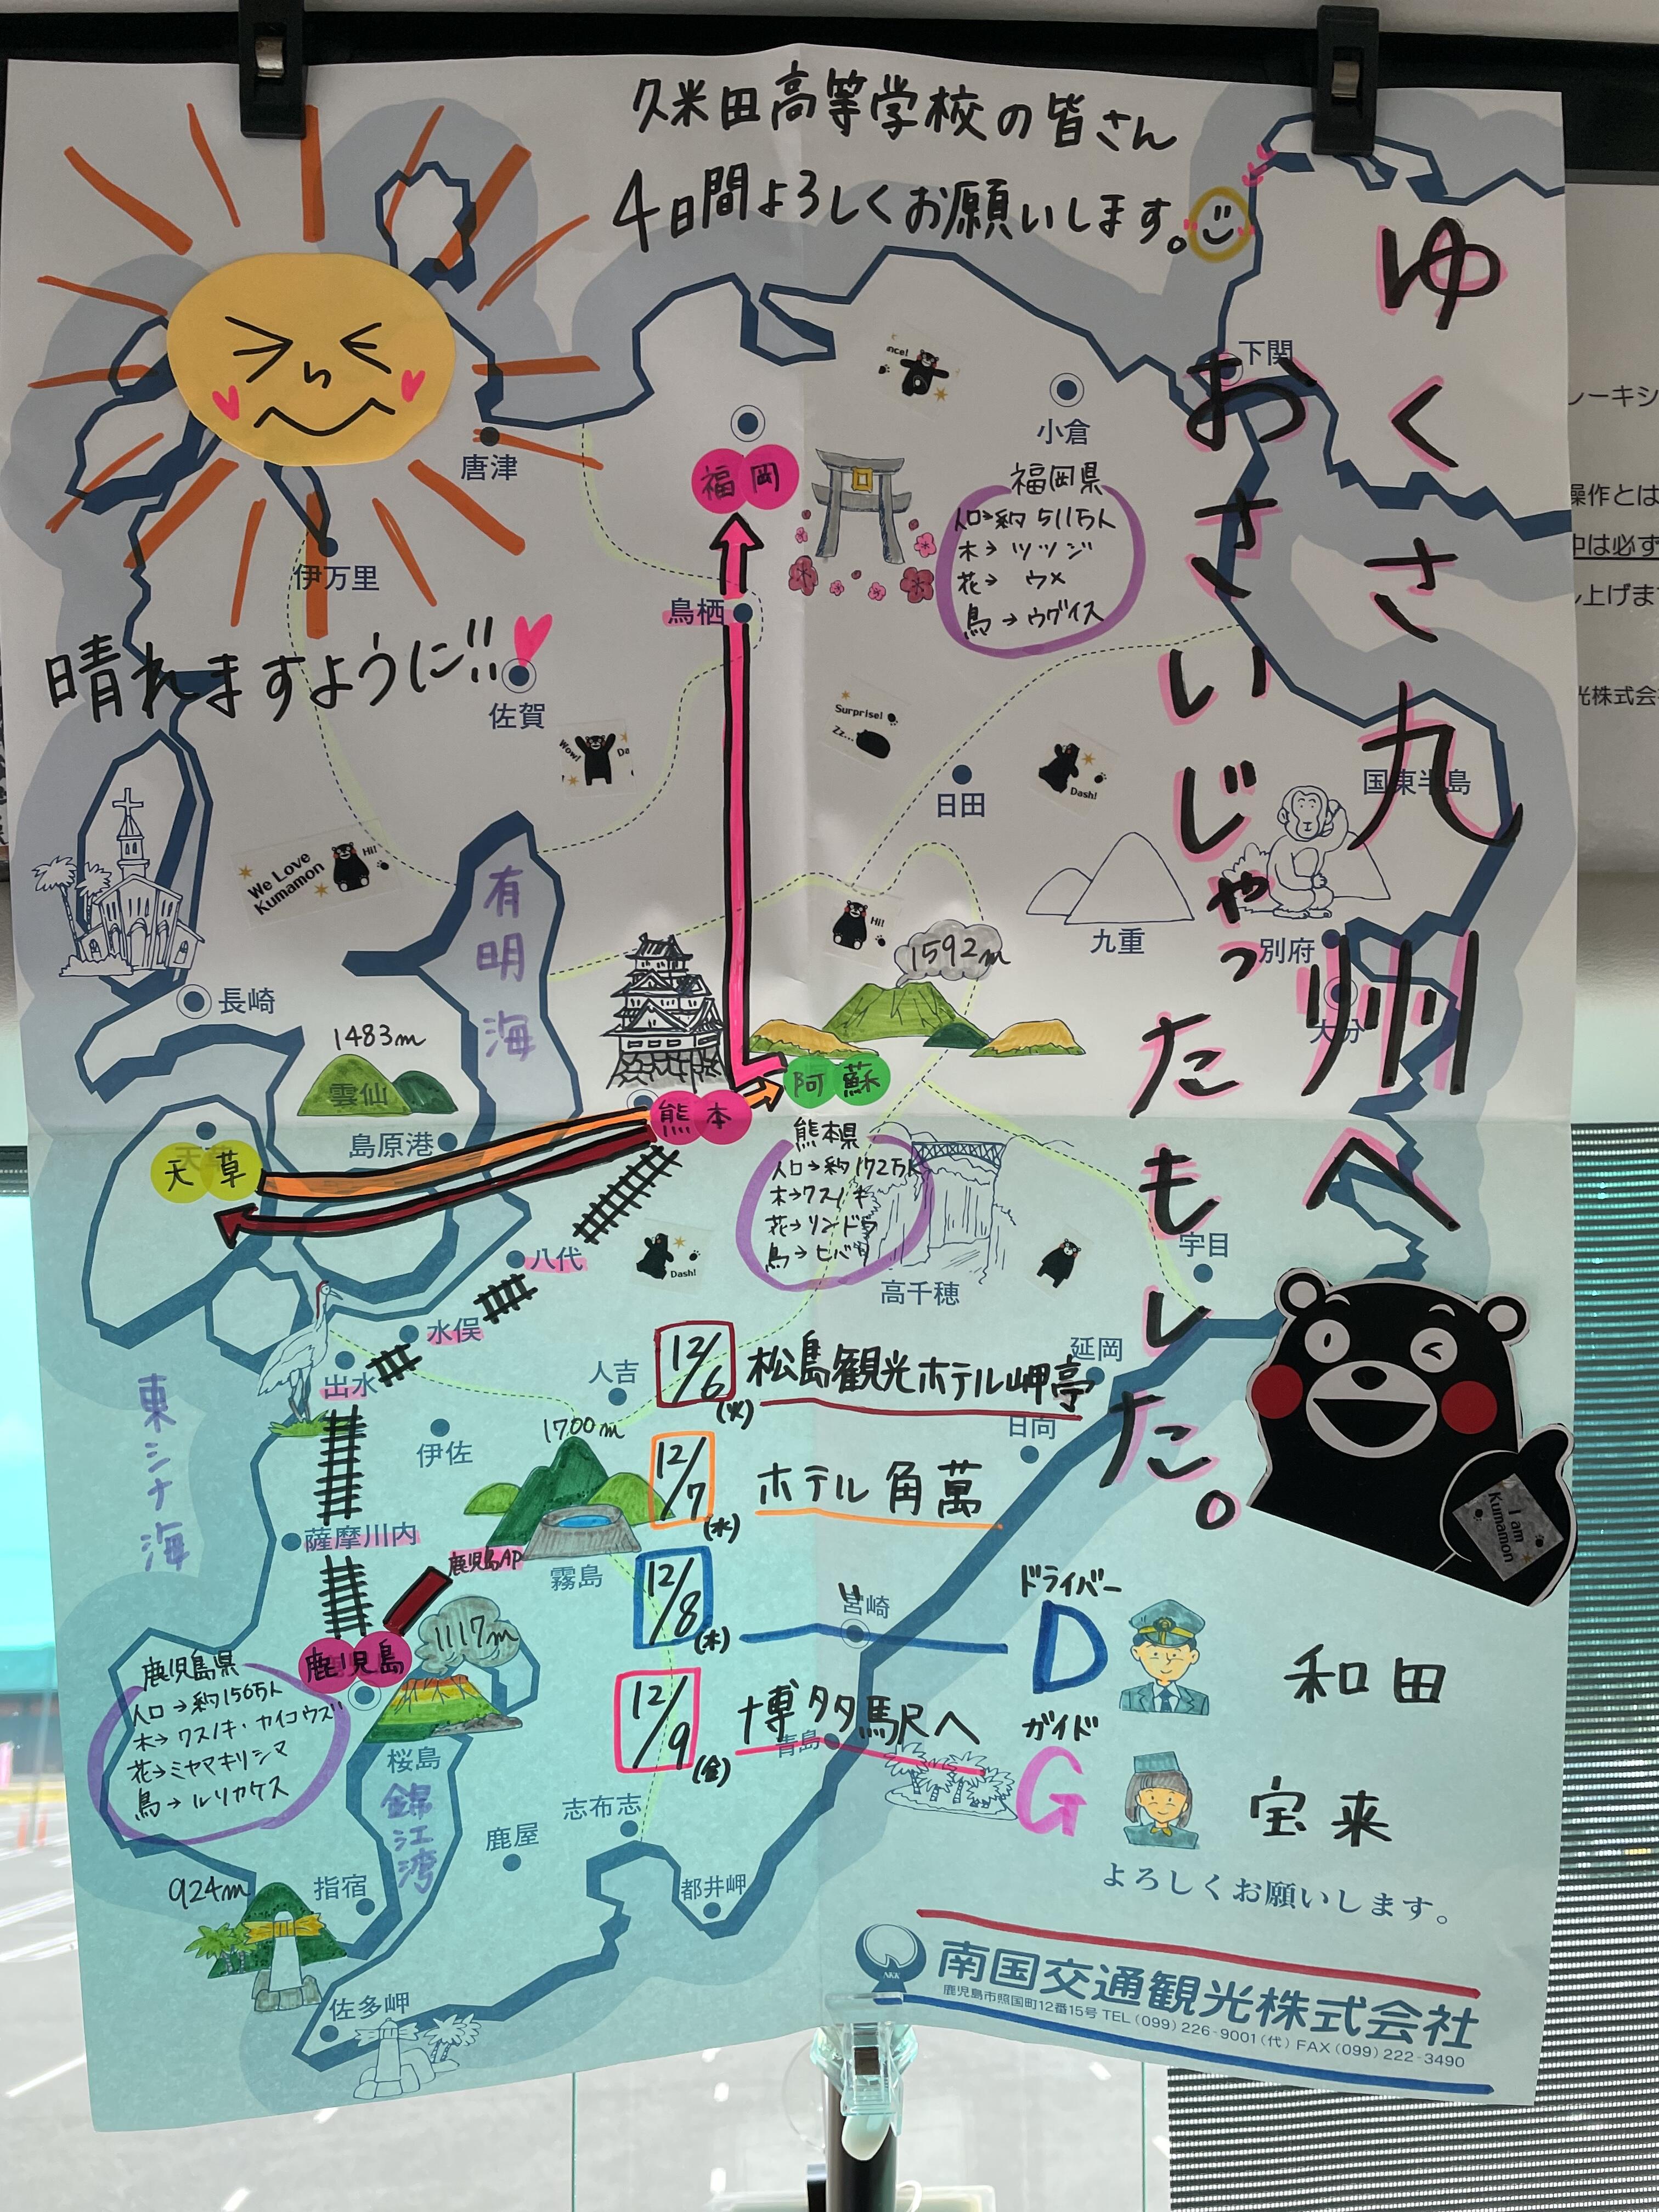 久米田高等学校の皆さん
4日間よろしくお願いします。
ゆくさ九州へ
おさいじゃったもした。
晴れますように!!
下関
小倉
唐津
福岡
福岡県
人口→約511万人
木→ツツジ
花→ウメ
鳥→ウグイス
伊万里
鳥栖
佐賀
Wow!
Surprise!
Zz...
Dash!
日田
国東半島
We Love
Kumamon
Hi!
有明海
Hi!
1592m
九重
別府
大分
長崎
1483m
雲仙
島原港
阿蘇
熊本
天草
熊本県
人口→約172万人
木→クスノキ
花→リンドウ
鳥→ヒバリ
高千穂
宇目
八代
Dash!
水俣
出水
人吉
延岡
日向
伊佐
東シナ海
1700m
霧島
薩摩川内
鹿児島AP
鹿児島
1117m
桜島
12/6(火) 松島観光ホテル岬亭
12/7(水) ホテル角萬
12/8(木)
12/9(金) 博多駅へ
I am
Kumamon
宮崎
青島
ドライバー
D 和田
ガイド
G 宝来
よろしくお願いします。
鹿児島県
人口→約156万人
木→クスノキ・カイコウズ
花→ミヤマキリシマ
鳥→ルリカケス
錦江湾
志布志
鹿屋
都井岬
924m
指宿
佐多岬
南国交通観光株式会社
鹿児島市照国町12番15号 TEL (099) 226-9001(代) FAX (099) 222-3490
レーキシ
操作とは
中は必ず
し上げま
光株式会